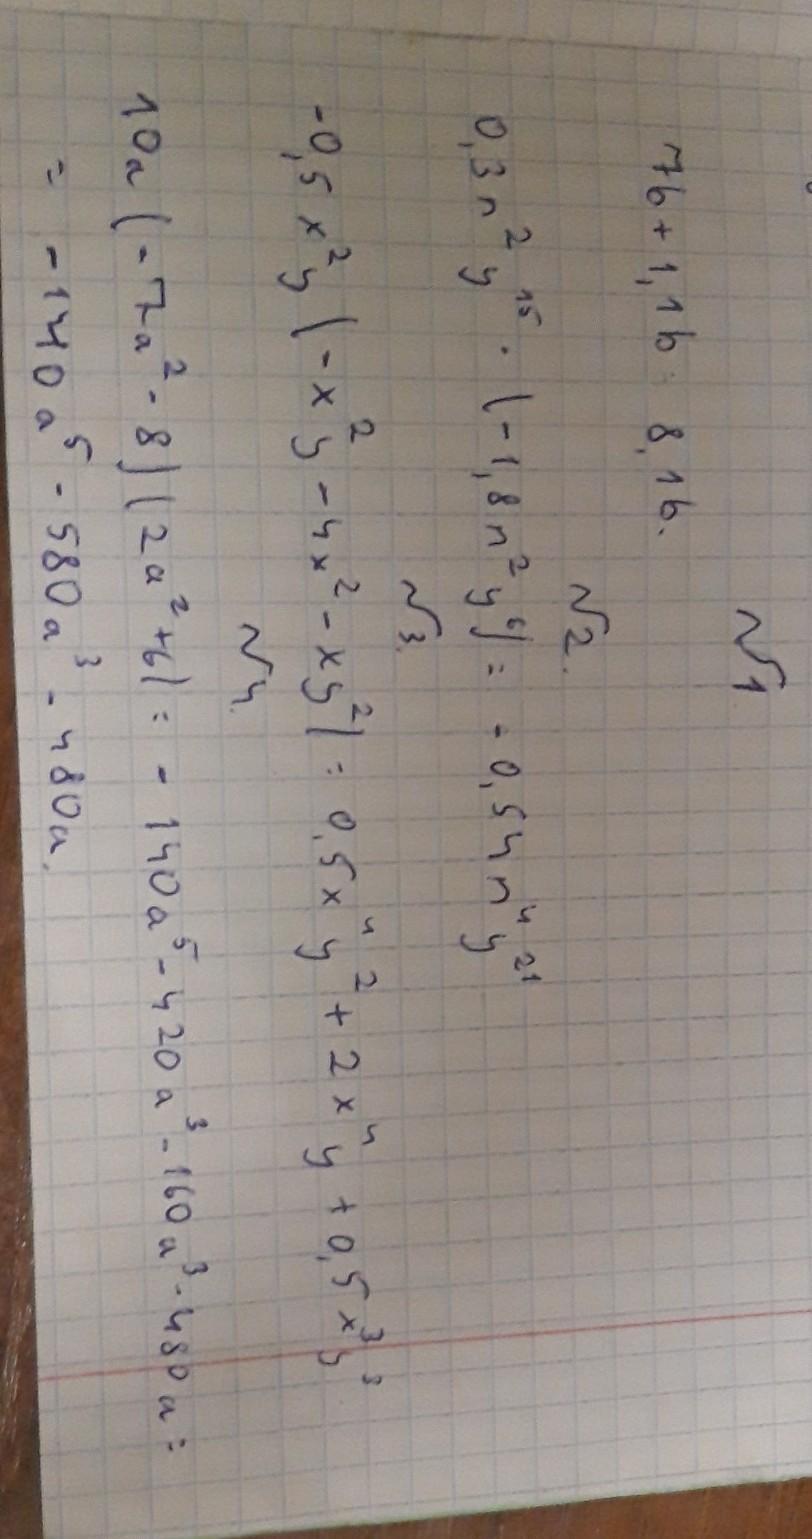 №1
7b + 1,1b = 8,1b.
№2.
0,3n²y¹⁵ · (-1,8n²y⁶) = -0,54n⁴y²¹
№3.
-0,5x²y(-x²y - 4x² - xy²) = 0,5x⁴y² + 2x⁴y + 0,5x³y³
№4.
10a(-7a² - 8)(2a² + 6) = -140a⁵ - 420a³ - 160a³ - 480a =
= -140a⁵ - 580a³ - 480a.